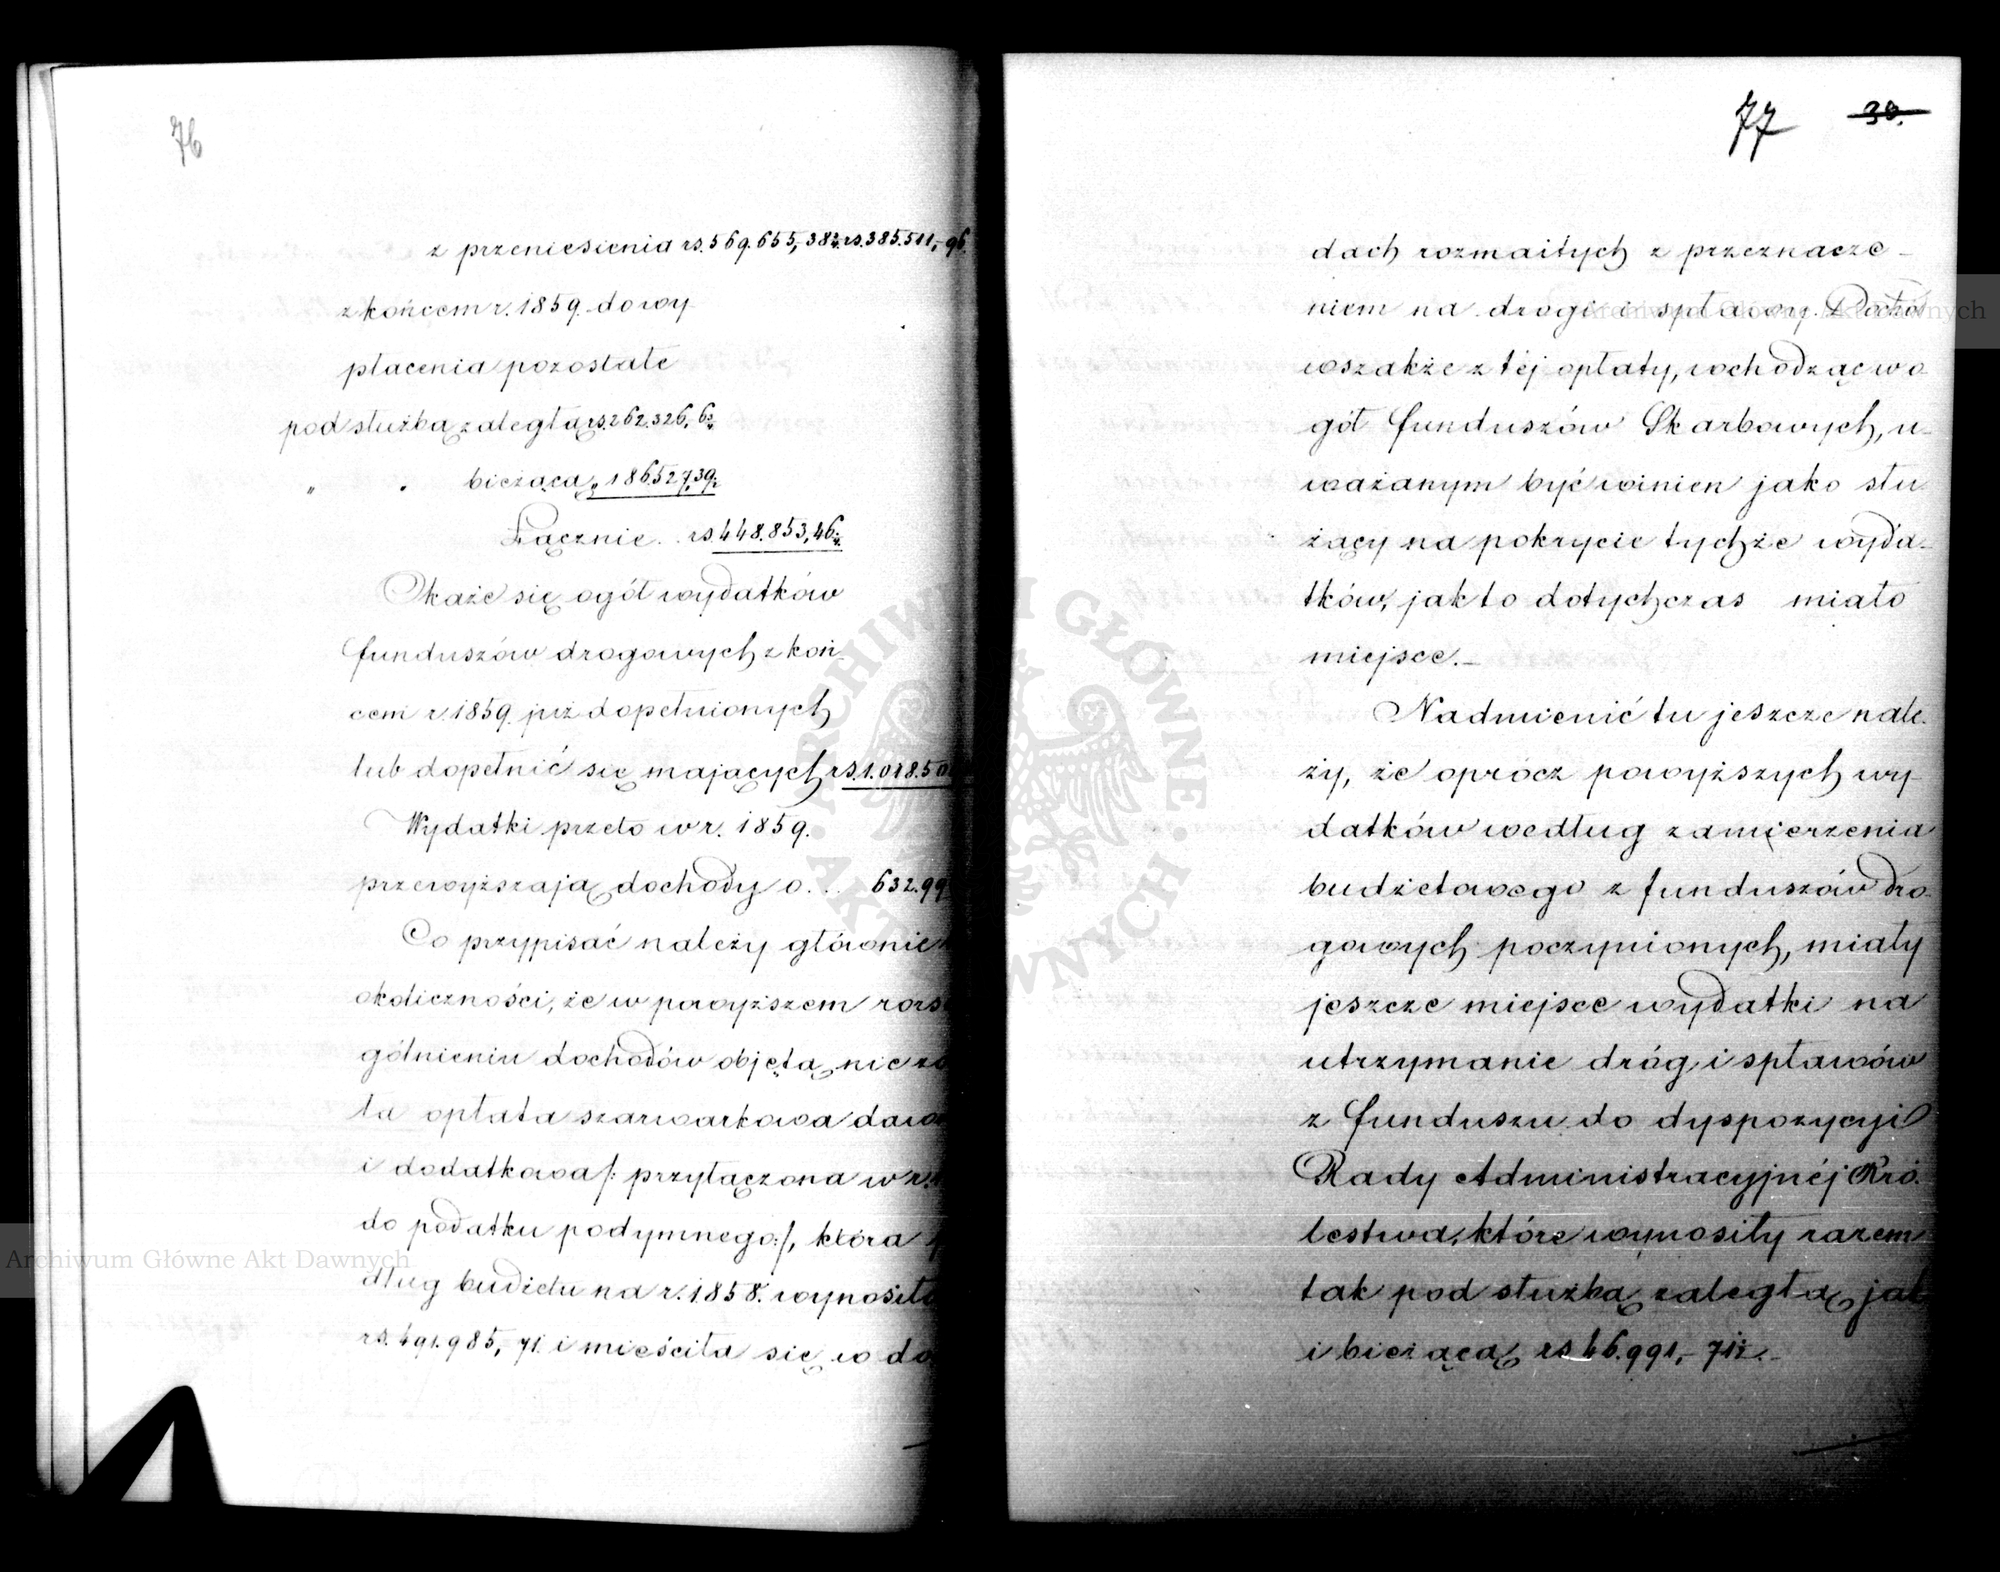 76
z przeniesienia rs. 569.655,38¾ rs. 385.511,-96.
z końcem r. 1859. do wy
płacenia pozostałe
pod służbą zaległą rs. 262.326,
" . bieżącą „ 186.527,39½
Łącznie . . rs. 448.853,46
Okaże się ogół wydatków
funduszów drogowych z koń-
cem r. 1859. już dopełnionych
lub dopełnić się mających rs. 1.018.50
Wydatki przeto w r. 1859.
przewyższają dochody o . . . 632.99
Co przypisać należy głównie
okoliczności, że w powyższem
gólnieniu dochodów objętą nie
ta opłata szarwarkowa
i dodatkowa /: przyłączona w r.
do podatku podymnego :/, która
dług budżetu na r. 1858. wynosiła
rs. 491.985, 71. i mieściła się w do
77 30.
dach rozmaitych z przeznacze-
niem na drogi i spławy. Dochód
wszakże z téj opłaty, wchodząc w o-
gół funduszów Skarbowych, u-
ważanym być winien jako słu
żący na pokrycie tychże wyda-
tków, jak to dotychczas miało
miejsce.-
Nadmienić tu jeszcze nale-
ży, że oprócz powyższych wy-
datków według zamierzenia
budżetowego z funduszów dro-
gowych poczynionych, miały
jeszcze miejsce wydatki na
utrzymanie dróg i spławów
z funduszu do dyspozycyi
Rady Administracyjnéj Kró-
lestwa, które wynosiły razem
tak pod służbą zaległą jak
i bieżącą rs 46.991,- 71½.-
Archiwum Główne Akt Dawnych
Archiwum Główne Akt Dawnych
ARCHIWUM GŁÓWNE AKT DAWNYCH